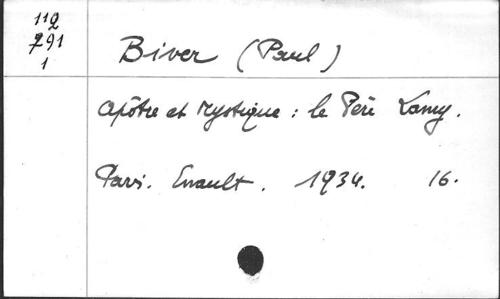 112
791
1
Biver (Paul)
Apôtre et Mystique : le Père Lamy.
Paris. Enault. 1934. 16.